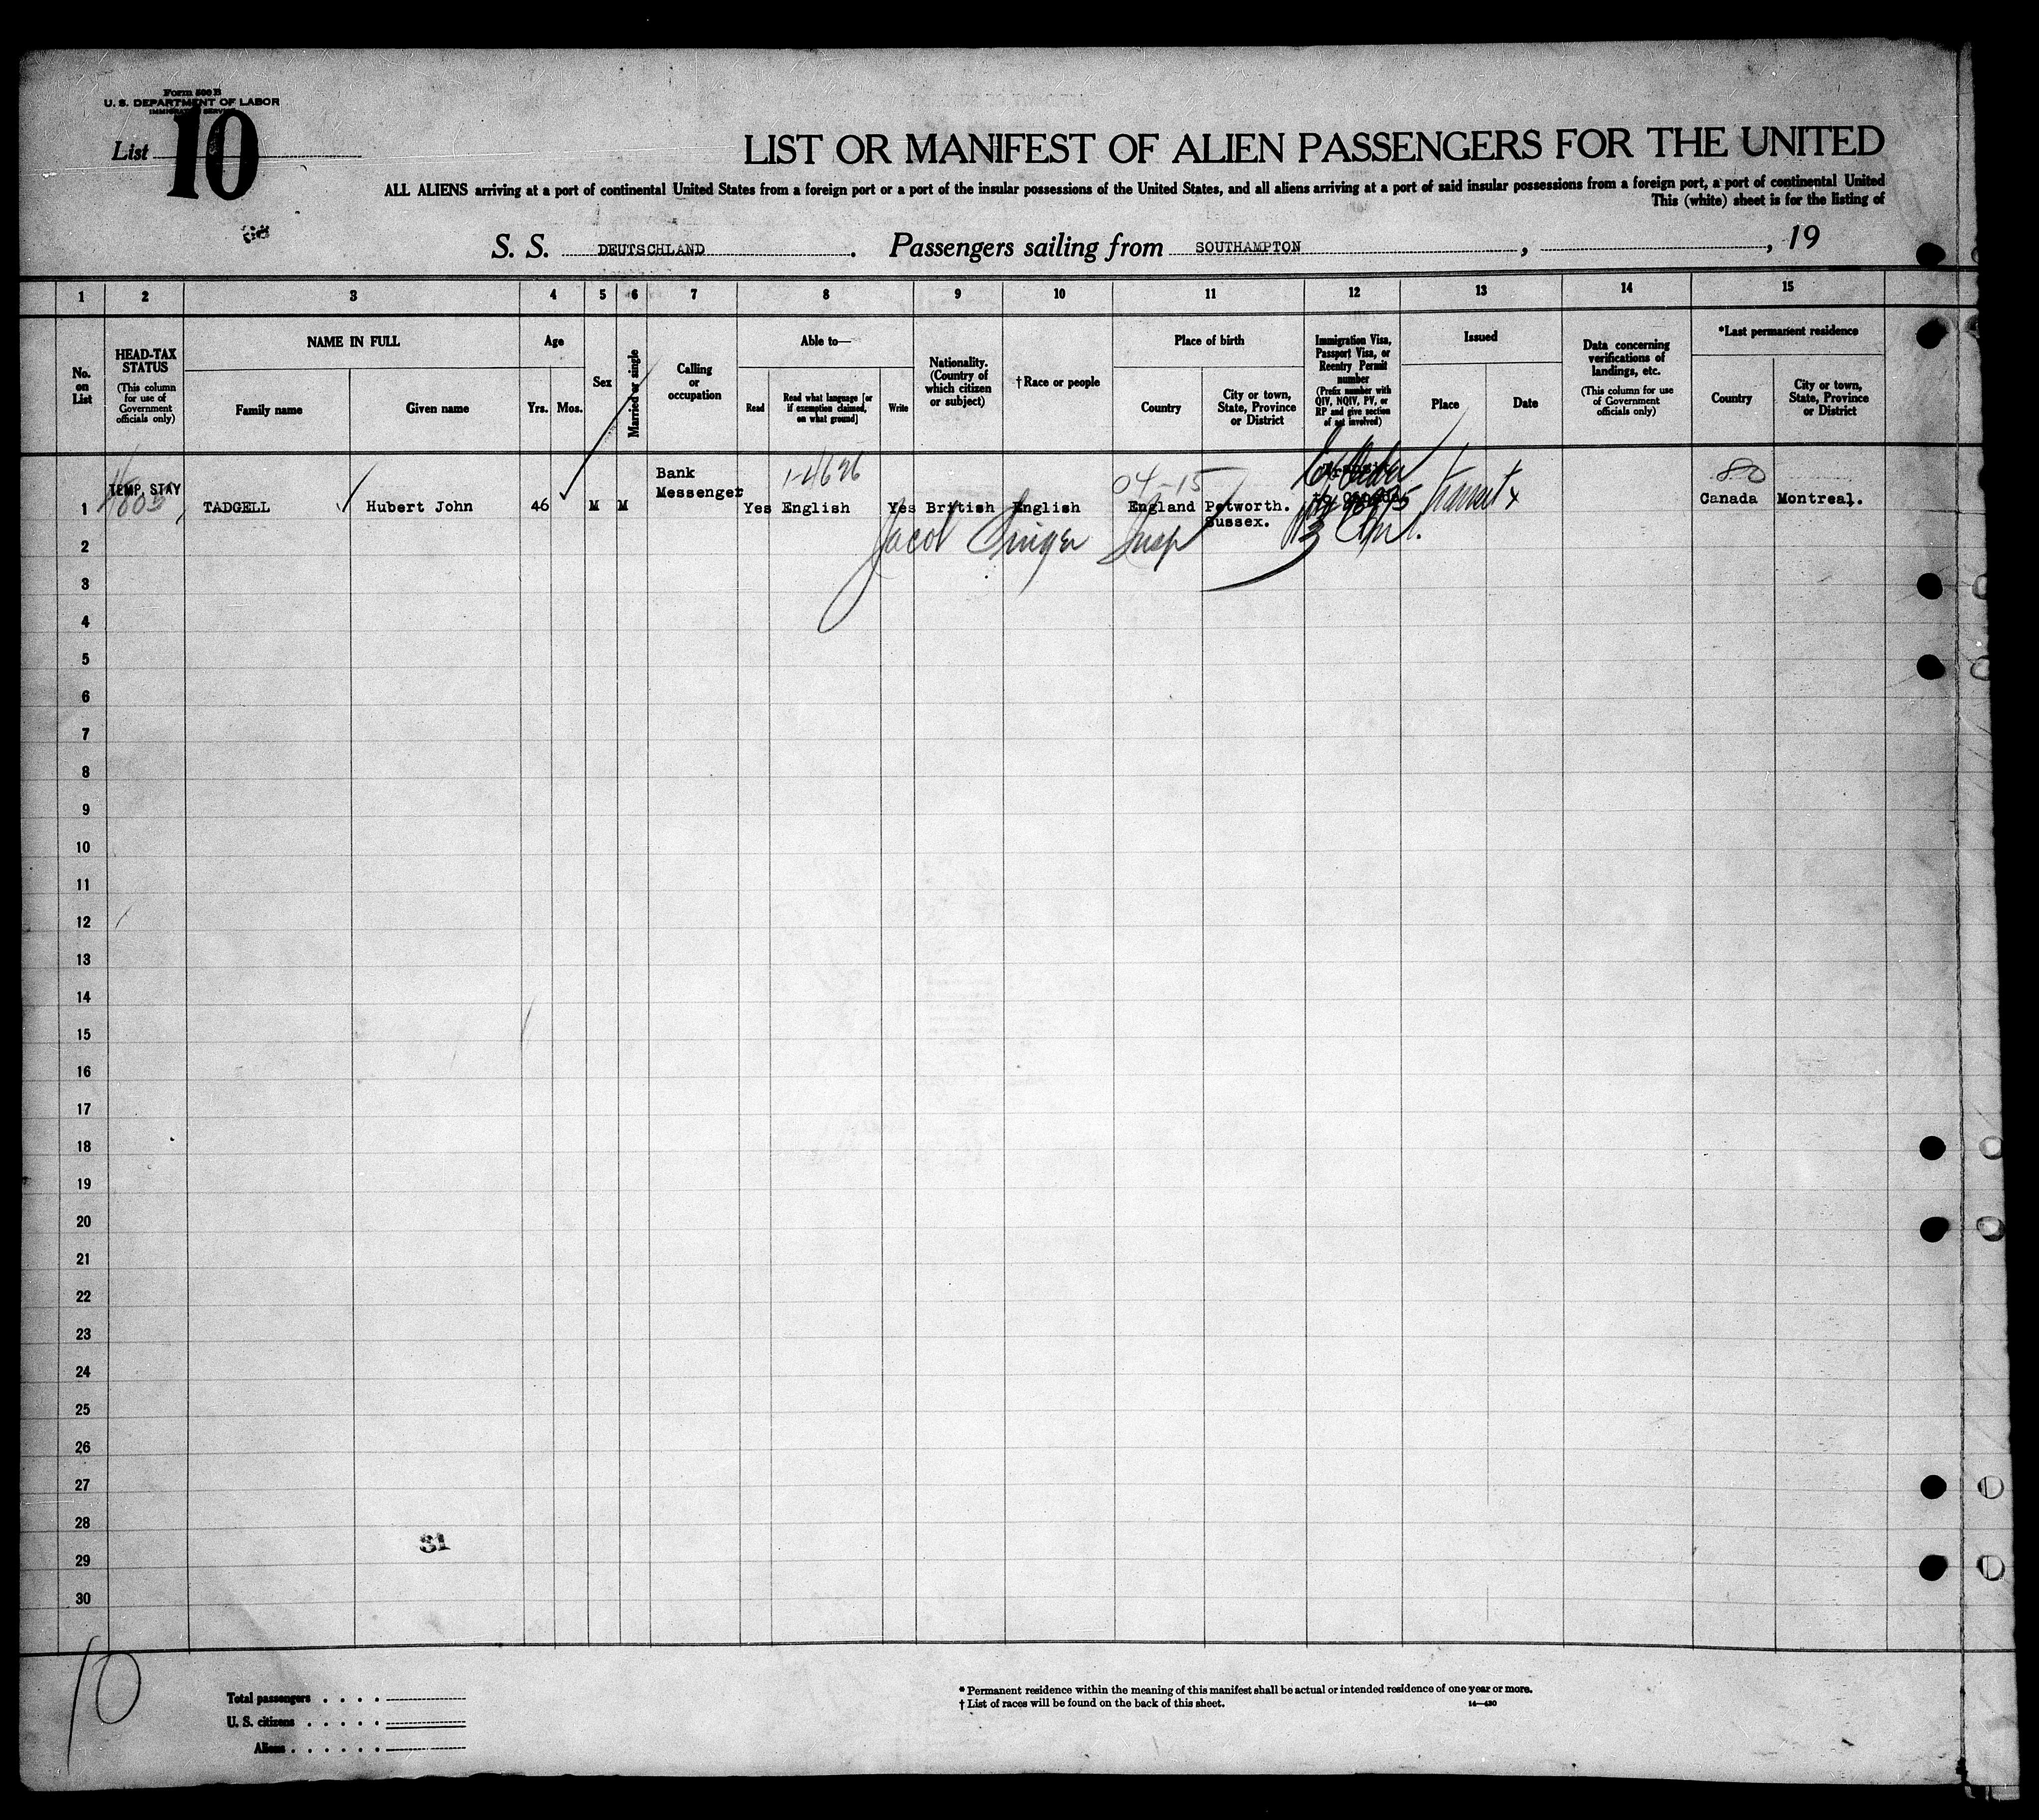 Form 500 B
U. S. DEPARTMENT OF LABOR
IMMIGRATION SERVICE
List 10
LIST OR MANIFEST OF ALIEN PASSENGERS FOR THE UNITED
ALL ALIENS arriving at a port of continental United States from a foreign port or a port of the insular possessions of the United States, and all aliens arriving at a port of said insular possessions from a foreign port, a port of continental United
This (white) sheet is for the listing of
S. S. DEUTSCHLAND. Passengers sailing from SOUTHAMPTON, , 19
1 2 3 4 5 6 7 8 9 10 11 12 13 14 15
No. on List
HEAD-TAX STATUS
(This column for use of Government officials only)
NAME IN FULL
Family name
Given name
Age
Yrs. Mos.
Sex
Married or single
Calling or occupation
Able to—
Read
Read what language [or if exemption claimed, on what ground]
Write
Nationality. (Country of which citizen or subject)
†Race or people
Place of birth
Country
City or town, State, Province or District
Immigration Visa, Passport Visa, or Reentry Permit number
(Prefix number with QIV, NQIV, PV, or RP and give section of act involved)
Issued
Place
Date
Data concerning verifications of landings, etc.
(This column for use of Government officials only)
*Last permanent residence
Country
City or town, State, Province or District
1-4626
04-15
80
TEMP. STAY
1 TADGELL Hubert John 46 M M Bank Messenger Yes English Yes British English England Petworth. Sussex. Transit Canada Montreal.
Jacob Singer Insp
2
3
4
5
6
7
8
9
10
11
12
13
14
15
16
17
18
19
20
21
22
23
24
25
26
27
28
31
29
30
10
Total passengers . . . .
U. S. citizens . . . . .
Aliens . . . . . .
* Permanent residence within the meaning of this manifest shall be actual or intended residence of one year or more.
† List of races will be found on the back of this sheet.
14—430